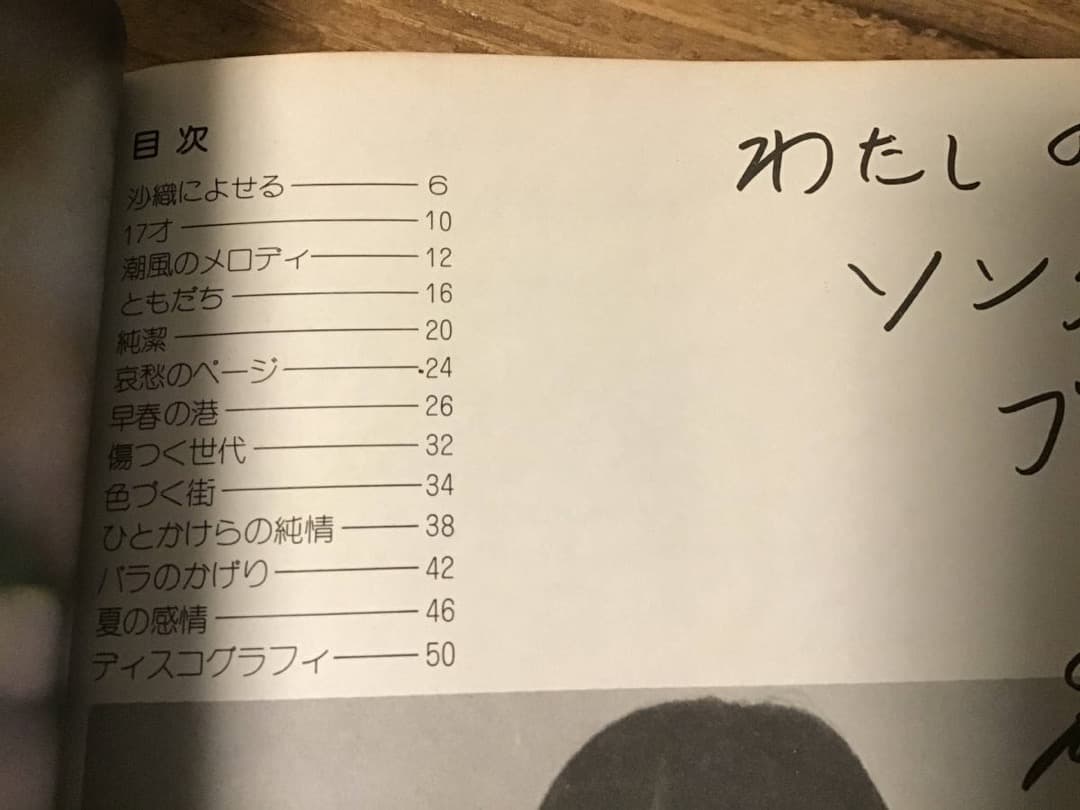 目次
沙織によせる 6
17才 10
潮風のメロディ 12
ともだち 16
純潔 20
哀愁のページ 24
早春の港 26
傷つく世代 32
色づく街 34
ひとかけらの純情 38
バラのかげり 42
夏の感情 46
ディスコグラフィ 50
わたし
ソン
ブ